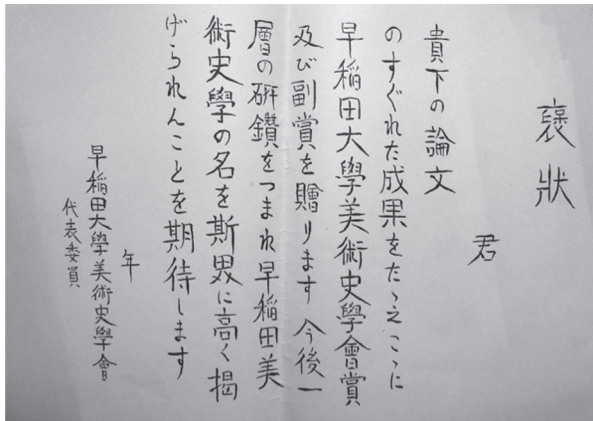 褒狀
君
貴下の論文
のすぐれた成果をたゝえこゝに
早稲田大學美術史學會賞
及び副賞を贈ります 今後一
層の研鑽をつまれ早稲田美
術史學の名を斯界に高く揭
げられんことを期待します
年
早稲田大學美術史學會
代表委員